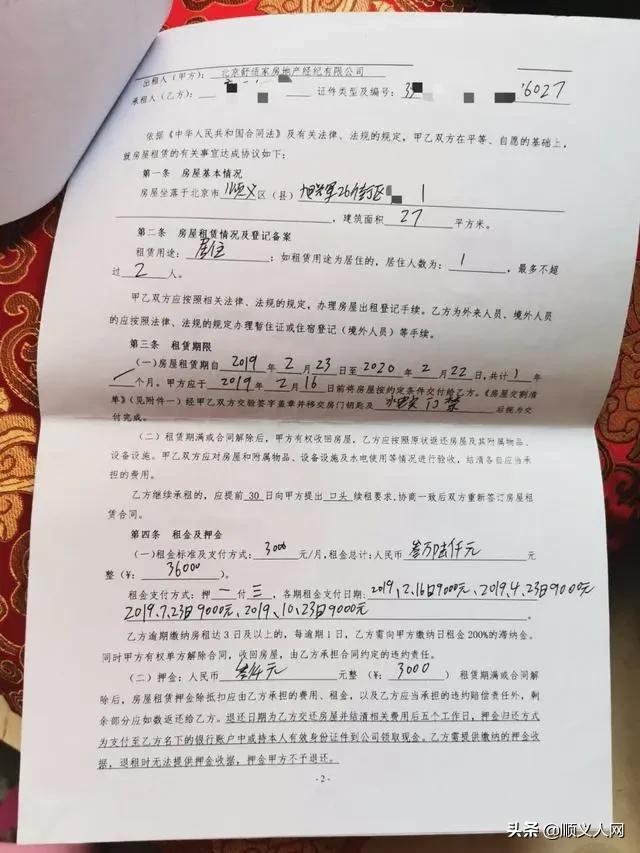 出租人（甲方）：北京舒适家房地产经纪有限公司
承租人（乙方）： 证件类型及编号：33 6027
依据《中华人民共和国合同法》及有关法律、法规的规定，甲乙双方在平等、自愿的基础上，
就房屋租赁的有关事宜达成协议如下：
第一条 房屋基本情况
房屋坐落于北京市顺义区（县） 26街区 1
，建筑面积 27 平方米。
第二条 房屋租赁情况及登记备案
租赁用途：居住；如租赁用途为居住的，居住人数为：1，最多不超
过 2 人。
甲乙双方应按照相关法律、法规的规定，办理房屋出租登记手续。乙方为外来人员、境外人员
的应按照法律、法规的规定办理暂住证或住宿登记（境外人员）等手续。
第三条 租赁期限
（一）房屋租赁期自 2019 年 2 月 23 日至 2020 年 2 月 22 日,共计 1 年
个月。甲方应于 2019 年 2 月 16 日前将房屋按约定条件交付给乙方。《房屋交割清
单》（见附件一）经甲乙双方交验签字盖章并移交房门钥匙及 门禁 后视为交
付完成。
（二）租赁期满或合同解除后，甲方有权收回房屋，乙方应按照原状返还房屋及其附属物品、
设备设施。甲乙双方应对房屋和附属物品、设备设施及水电使用等情况进行验收，结清各自应当承
担的费用。
乙方继续承租的，应提前 30 日向甲方提出 口头 续租要求,协商一致后双方重新签订房屋租
赁合同。
第四条 租金及押金
（一）租金标准及支付方式：3000 元/月,租金总计:人民币 叁万陆仟元 元
整（¥：36000）。
租金支付方式：押 一 付 三，各期租金支付日期：2019,2.16日9000元、2019,4.23日9000元
2019.7.23日9000元、2019,10,23日9000元。
乙方逾期缴纳房租达3日及以上的，每逾期1日，乙方需向甲方缴纳日租金200%的滞纳金。
同时甲方有权单方解除合同，收回房屋，由乙方承担合同约定的违约责任。
（二）押金：人民币 叁仟元 元整 （¥：3000） 租赁期满或合同解
除后，房屋租赁押金除抵扣应由乙方承担的费用、租金，以及乙方应当承担的违约赔偿责任外，剩
余部分应如数返还给乙方。退还日期为乙方交还房屋并结清相关费用后五个工作日，押金归还方式
为支付至乙方名下的银行账户中或持本人有效身份证件到公司领取现金。乙方需提供缴纳的押金收
据，退租时无法提供押金收据，押金甲方不予退还。
- 2 -
头条 @顺义人网